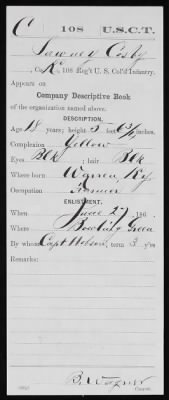 C 108 U.S.C.T.
Sawney Cosby
, Co. K, 108 Reg't U. S. Col'd Infantry.
Appears on
Company Descriptive Book
of the organization named above.
DESCRIPTION.
Age 18 years; height 5 feet 3½ inches.
Complexion Yellow
Eyes Blk ; hair Blk
Where born Warren, Ky
Occupation Farmer
ENLISTMENT.
When June 27, 186
Where Bowling Green
By whom Capt Hobson, term 3 y'rs
Remarks:
B. Wagner
Copyist.